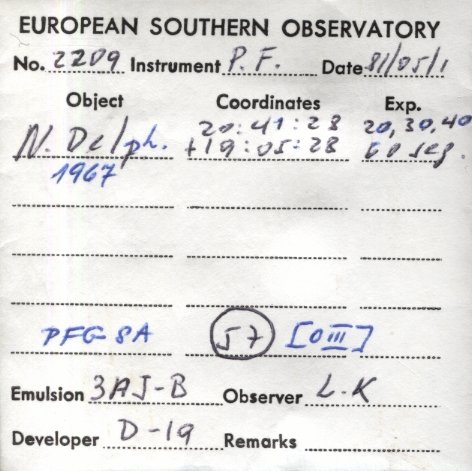 EUROPEAN SOUTHERN OBSERVATORY
No. 2209 Instrument P. F. Date 81/05/1
Object Coordinates Exp.
N. Delph. 20:41:23 20, 30, 40
+19:05:28 60 seg.
1967
PFG-8A 57 [OIII]
Emulsion 3AJ-B Observer L.K
Developer D-19 Remarks